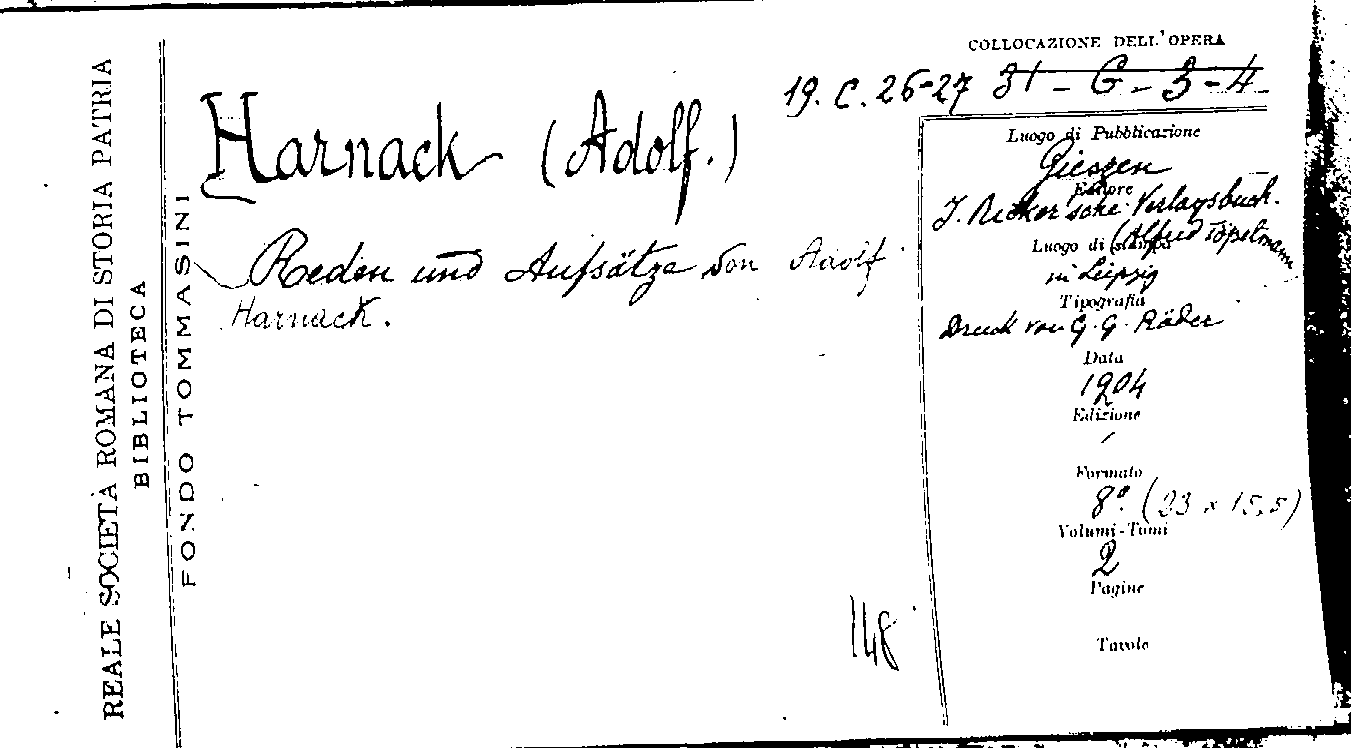 REALE SOCIETÀ ROMANA DI STORIA PATRIA
BIBLIOTECA
FONDO TOMMASINI
COLLOCAZIONE DELL'OPERA
19. C. 26-27 31 - G - 3 - 4
Harnack (Adolf.)
Reden und Aufsätze von Adolf
Harnack.
148
Luogo di Pubblicazione
Gieszen
Editore
J. Ricker'sche Verlagsbuch.
(Alfred Töpelmann)
Luogo di stampa
in Leipzig
Tipografia
Druck von G. G. Röder
Data
1904
Edizione
/
Formato
8º. (23 x 15,5)
Volumi-Tomi
2
Pagine
Tavole